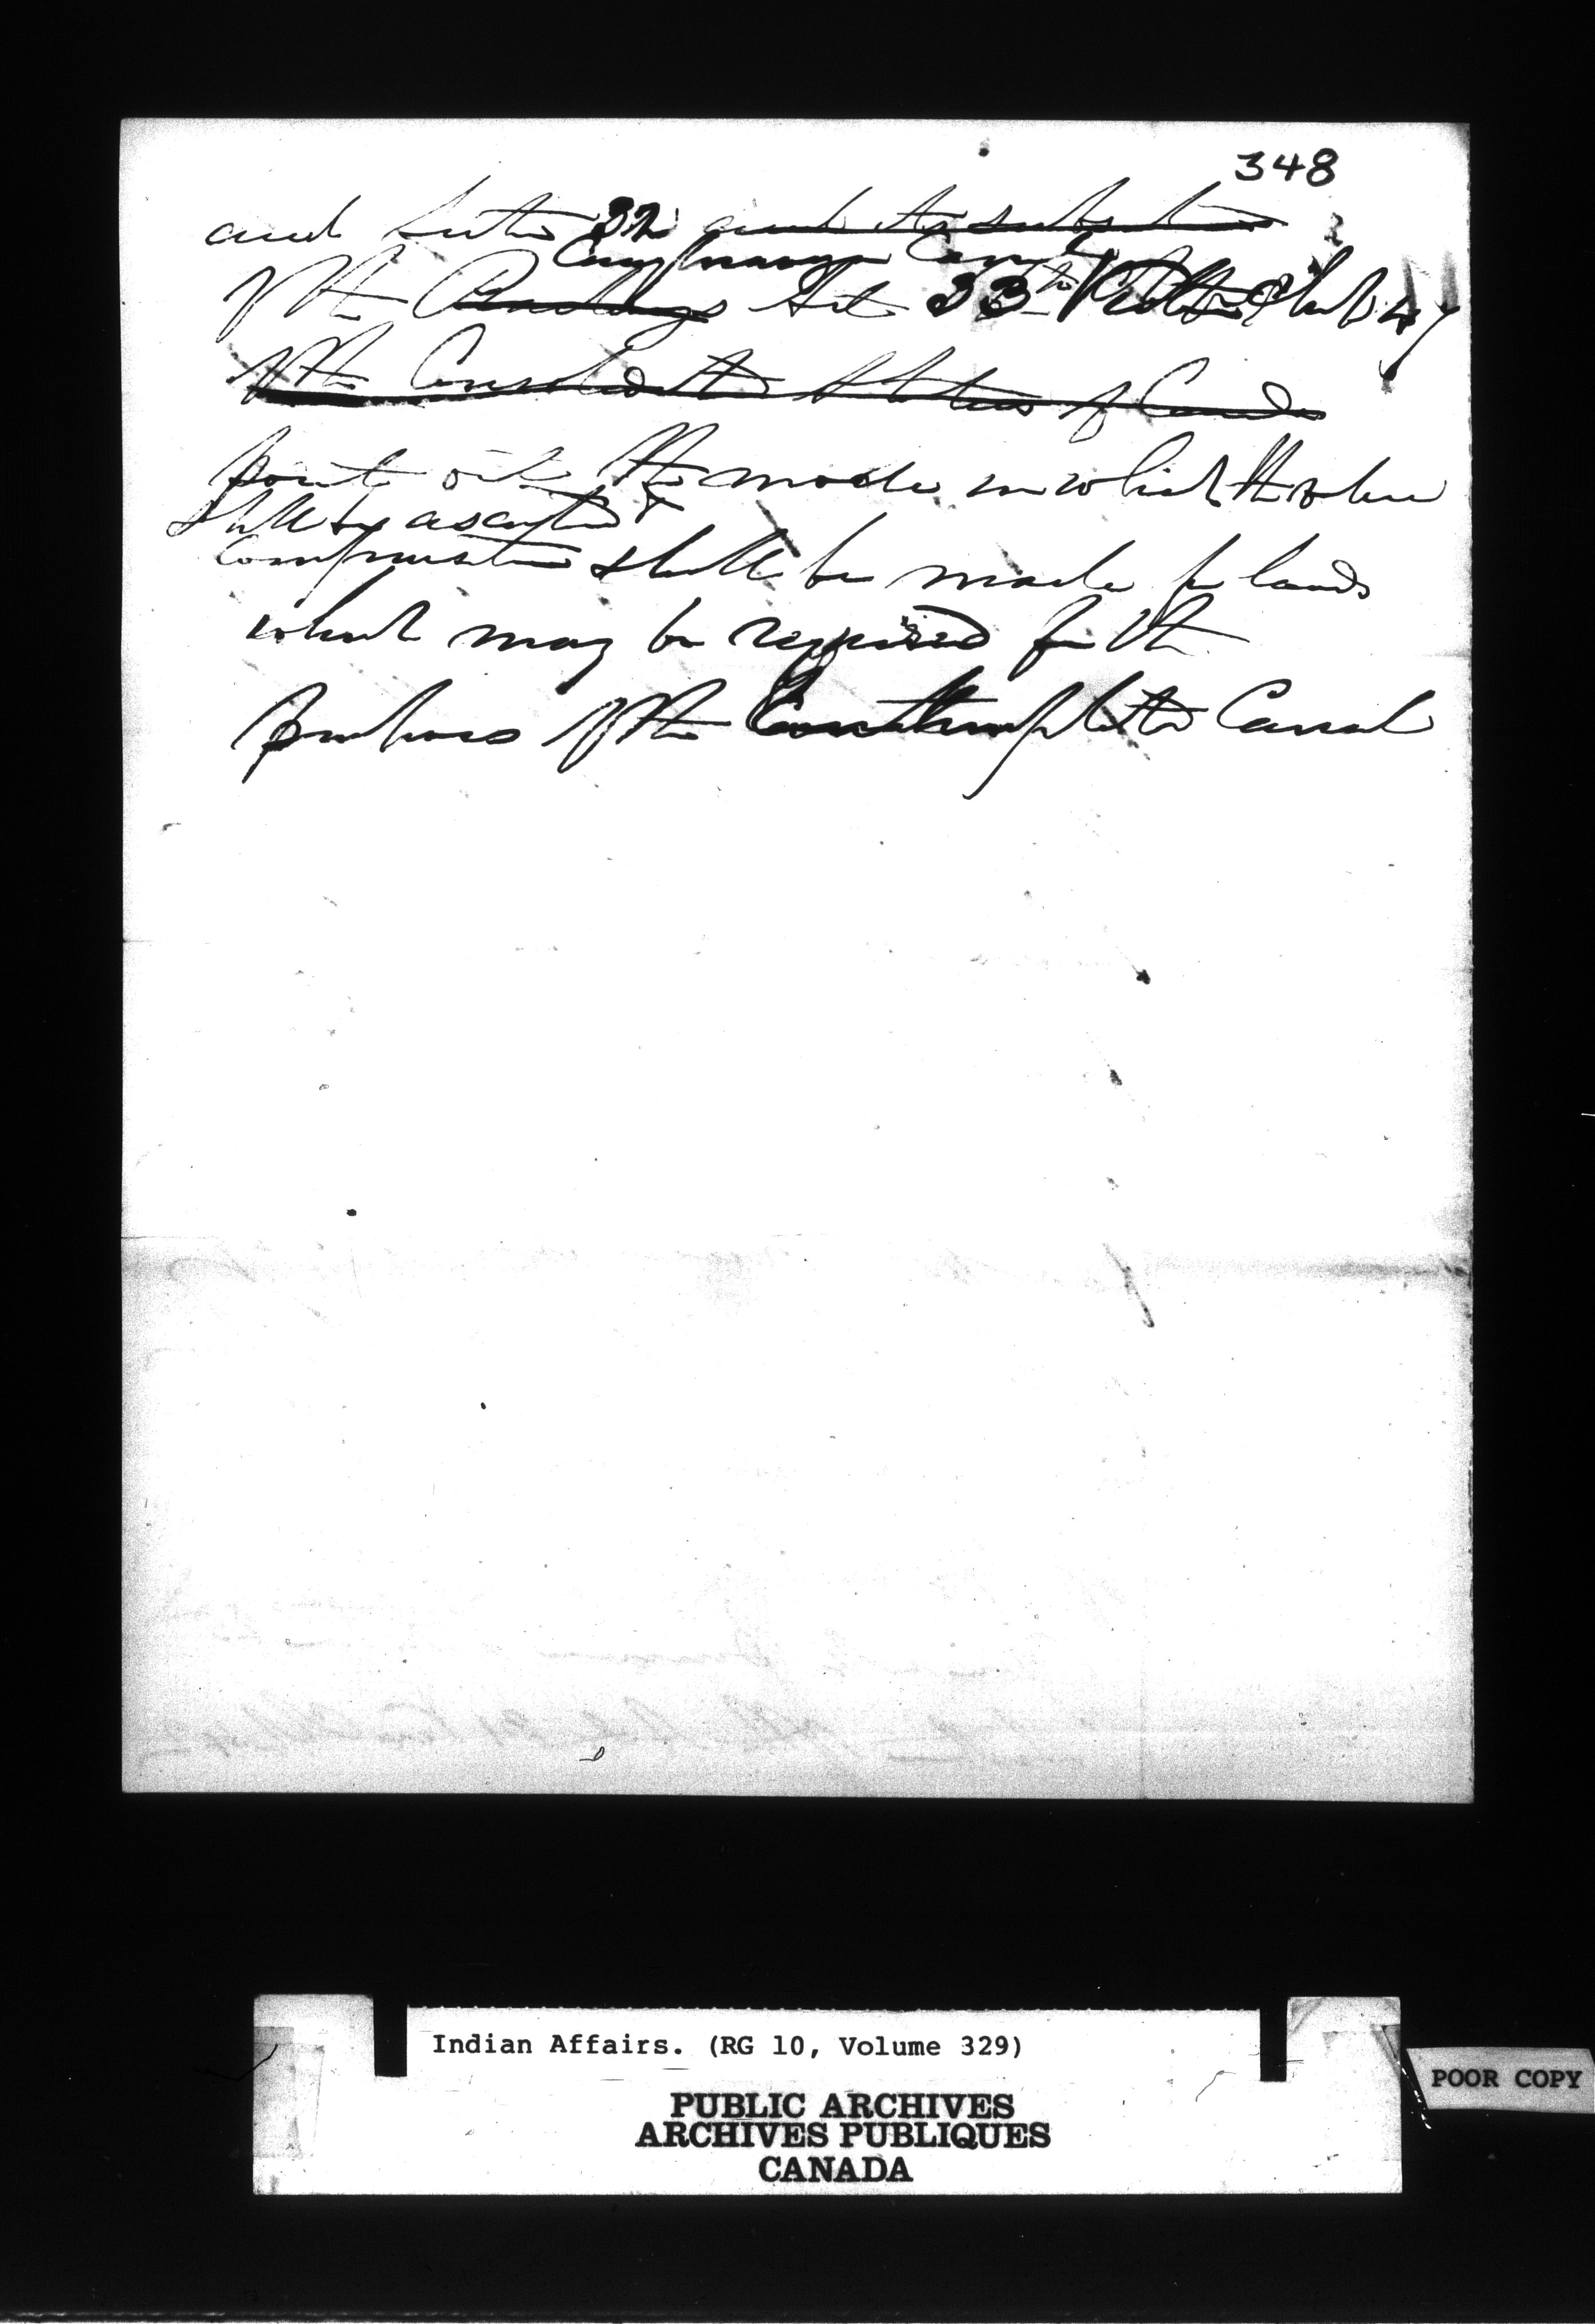 348
and Section 32 and its subsections
Caughnawaga Canal
of the Railways Act 33rd Victoria Chap 47
of the Consolidated Statutes of Canada
point out the mode in which the value
shall be ascertained &
compensation shall be made for lands
which may be required for the
purposes of the Contemplated Canal
Indian Affairs. (RG 10, Volume 329)
PUBLIC ARCHIVES
ARCHIVES PUBLIQUES
CANADA
POOR COPY